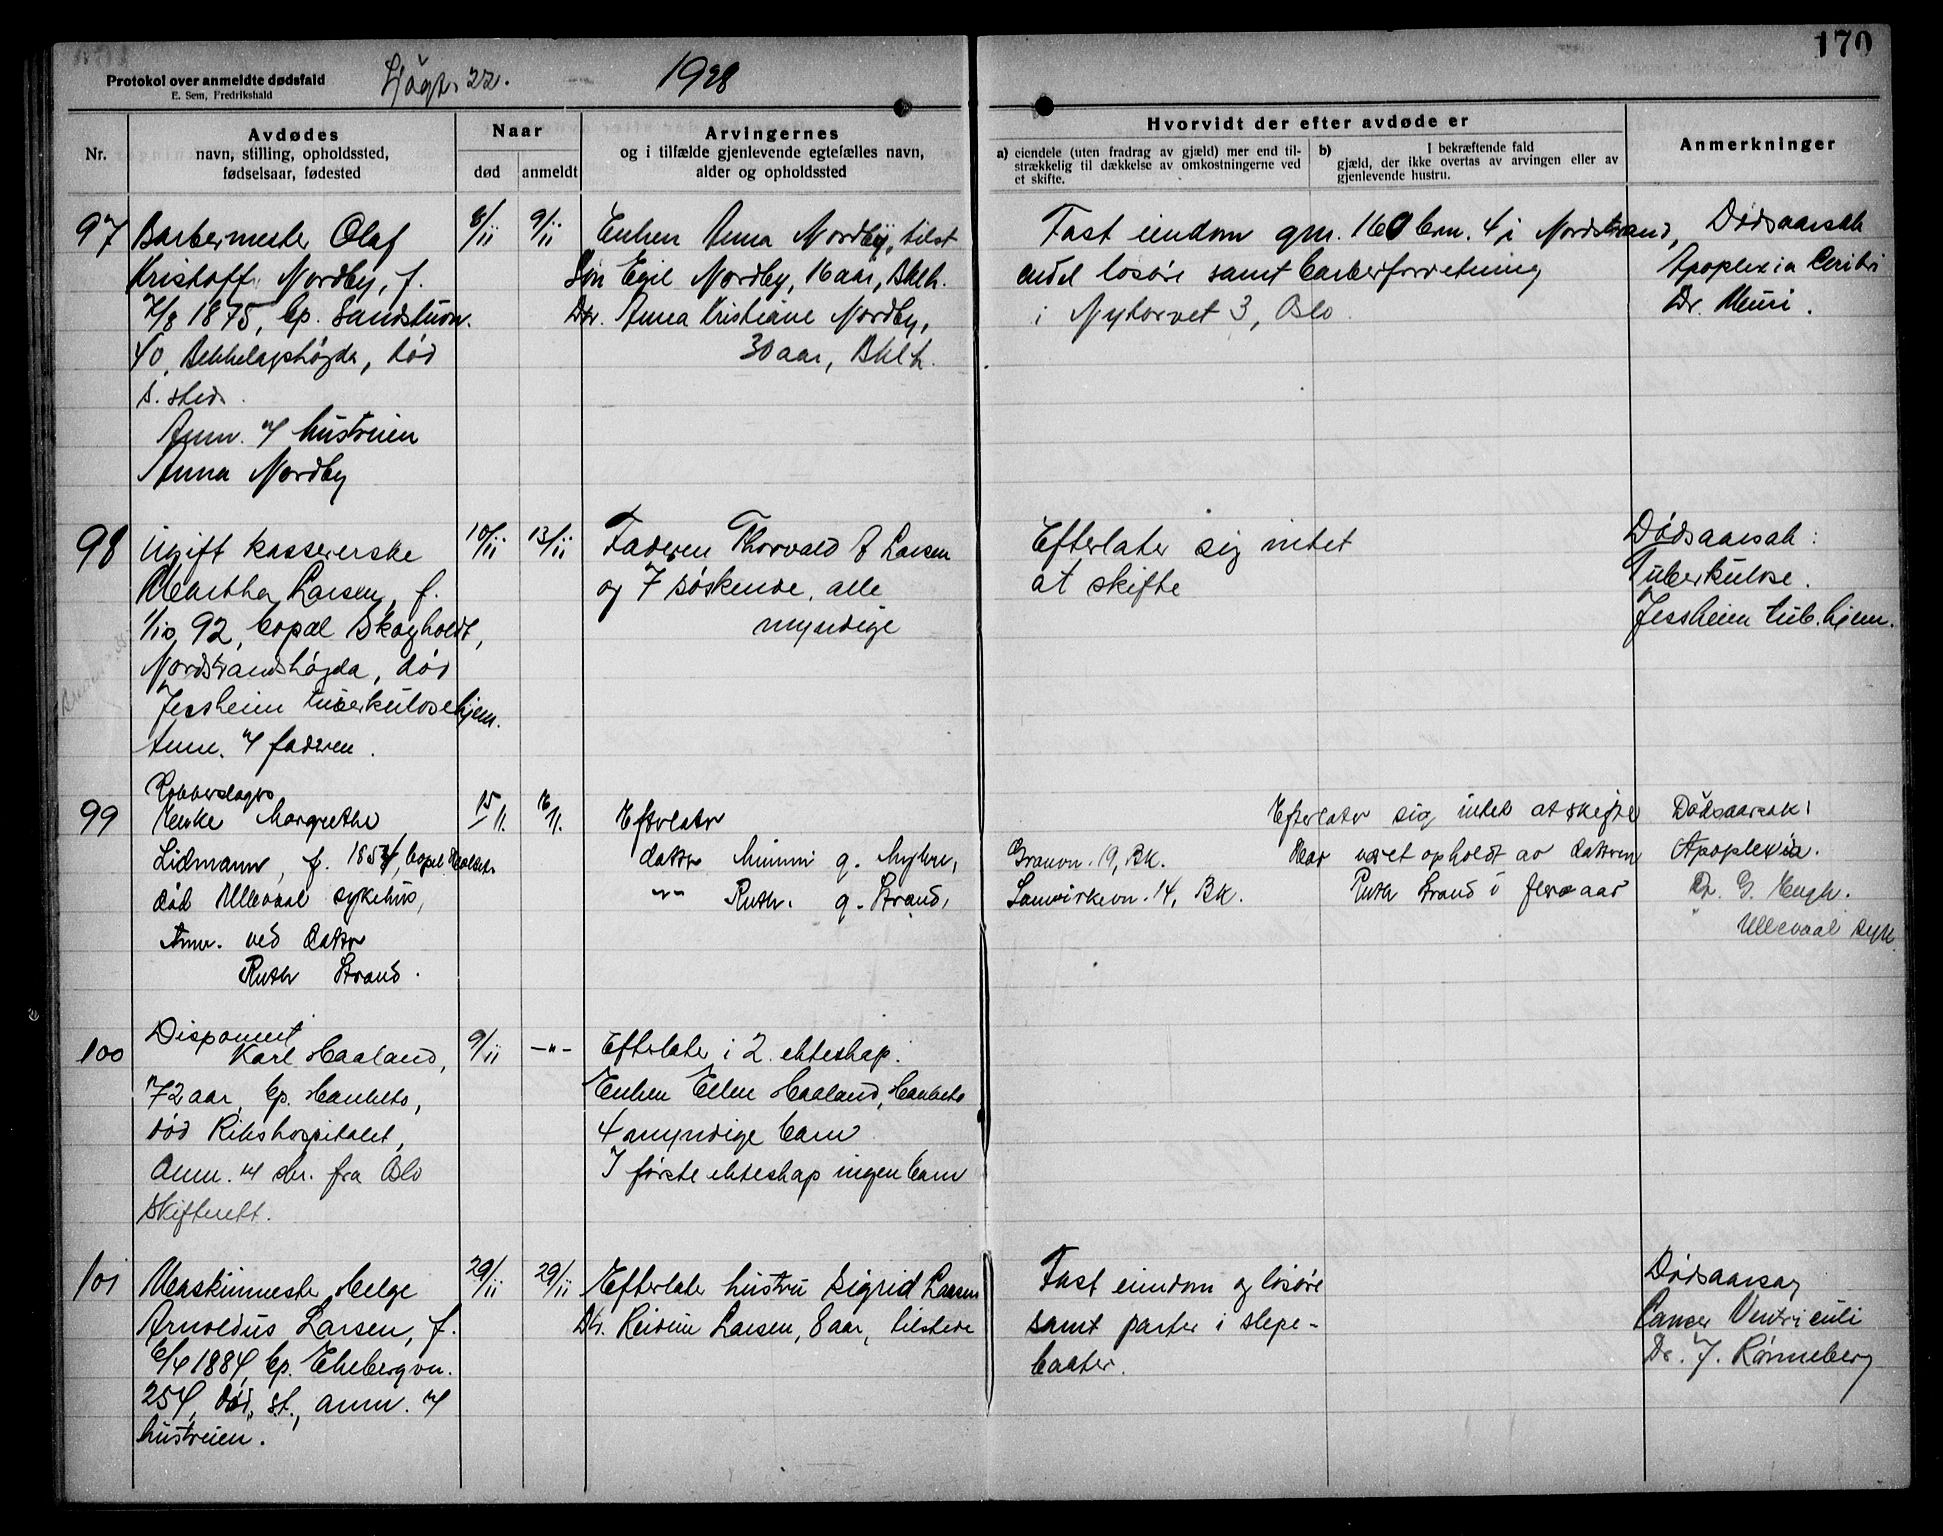 170
Protokol over anmeldte dødsfald
E. Sem, Fredrikshald
22.
1928
Nr.
Avdødes
navn, stilling, opholdssted,
fødselsaar, fødested
Naar
død
anmeldt
Arvingernes
og i tilfælde gjenlevende egtefælles navn,
alder og opholdssted
Hvorvidt der efter avdøde er
a) eiendele (uten fradrag av gjæld) mer end til-
strækkelig til dækkelse av omkostningerne ved
et skifte.
b) I bekræftende fald
gjæld, der ikke overtas av arvingen eller av
gjenlevende hustru.
Anmerkninger
97
Barbermester Olaf
Kristoff. Nordby, f.
7/8 1875, bp. Sandstuvn.
40, Bekkelagshøgda, død
s. sted.
Anm. v/ hustruen
Anna Nordby
8/11
9/11
Enken Anna Nordby, tilst
Søn Egil Nordby, 16 aar, Bklh.
Dtr. Anna Kristiane Nordby,
30 aar, Bklh.
Fast eiendom gnr. 160 bnr. 4 i Nordstrand,
endel løsøre samt barberforretning
i Nytorvet 3, Oslo.
Dødsaarsak
Apoplexia Cerebri
Dr.
98
Ugift kassererske
Martha Larsen, f.
1/10, 92, bopæl Skogholdt,
Nordstrandshøgda, død
Jessheim tuberkulosehjem.
Anm. v/ faderen.
10/11
13/11
Faderen Thorvald Larsen
og 7 søskende, alle
myndige
Efterlater sig intet
at skifte
Dødsaarsak:
Tuberkulose.
Jessheim tub.hjem.
99
Kobberslagers
Enke Margrethe
Lidmann, f. 1854, bopel
død Ullevaal sykehus,
Anm. ved datter
Ruth Strand.
15/11.
16/11.
Efterlater
datter Mimmi g. Myhre,
"" Ruth. g. Strand,
Granvn. 19, Bk.
Samvirkevn. 14, Bk.
Efterlater sig intet at skifte
Har været opholdt av datteren
Ruth Strand i flere aar
Dødsaarsak:
Apoplexia.
Dr. G. Engh.
Ullevaal syk.
100
Disponent
Karl Haaland,
72 aar, bp. Hauketo,
død Rikshospitalet,
Anm. v/ skr. fra Oslo
Skifterett.
9/11
-"-
Efterlater i 2. ekteskap.
Enken Ellen Haaland, Hauketo
4 myndige barn
I første ekteskap ingen barn
101
Maskinmester Helge
Arnoldus Larsen, f.
6/4 1884, bp. Ekebergvn.
254, død, st., anm. v/
hustruen.
29/11
29/11
Efterlater hustru Sigrid Larsen
Dtr. Reidun Larsen, 8 aar, tilstede
Fast eiendom og løsøre
samt parter i slepe-
baater.
Dødsaarsag
Cancer Ventriculi
Dr. J. Rønneberg